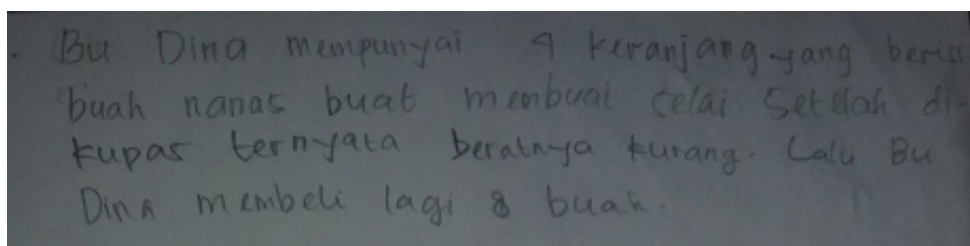 Bu Dina mempunyai 4 keranjang yang berisi
buah nanas buat membuat selai. Setelah di-
kupas ternyata beratnya kurang. Lalu Bu
Dina membeli lagi 8 buah.